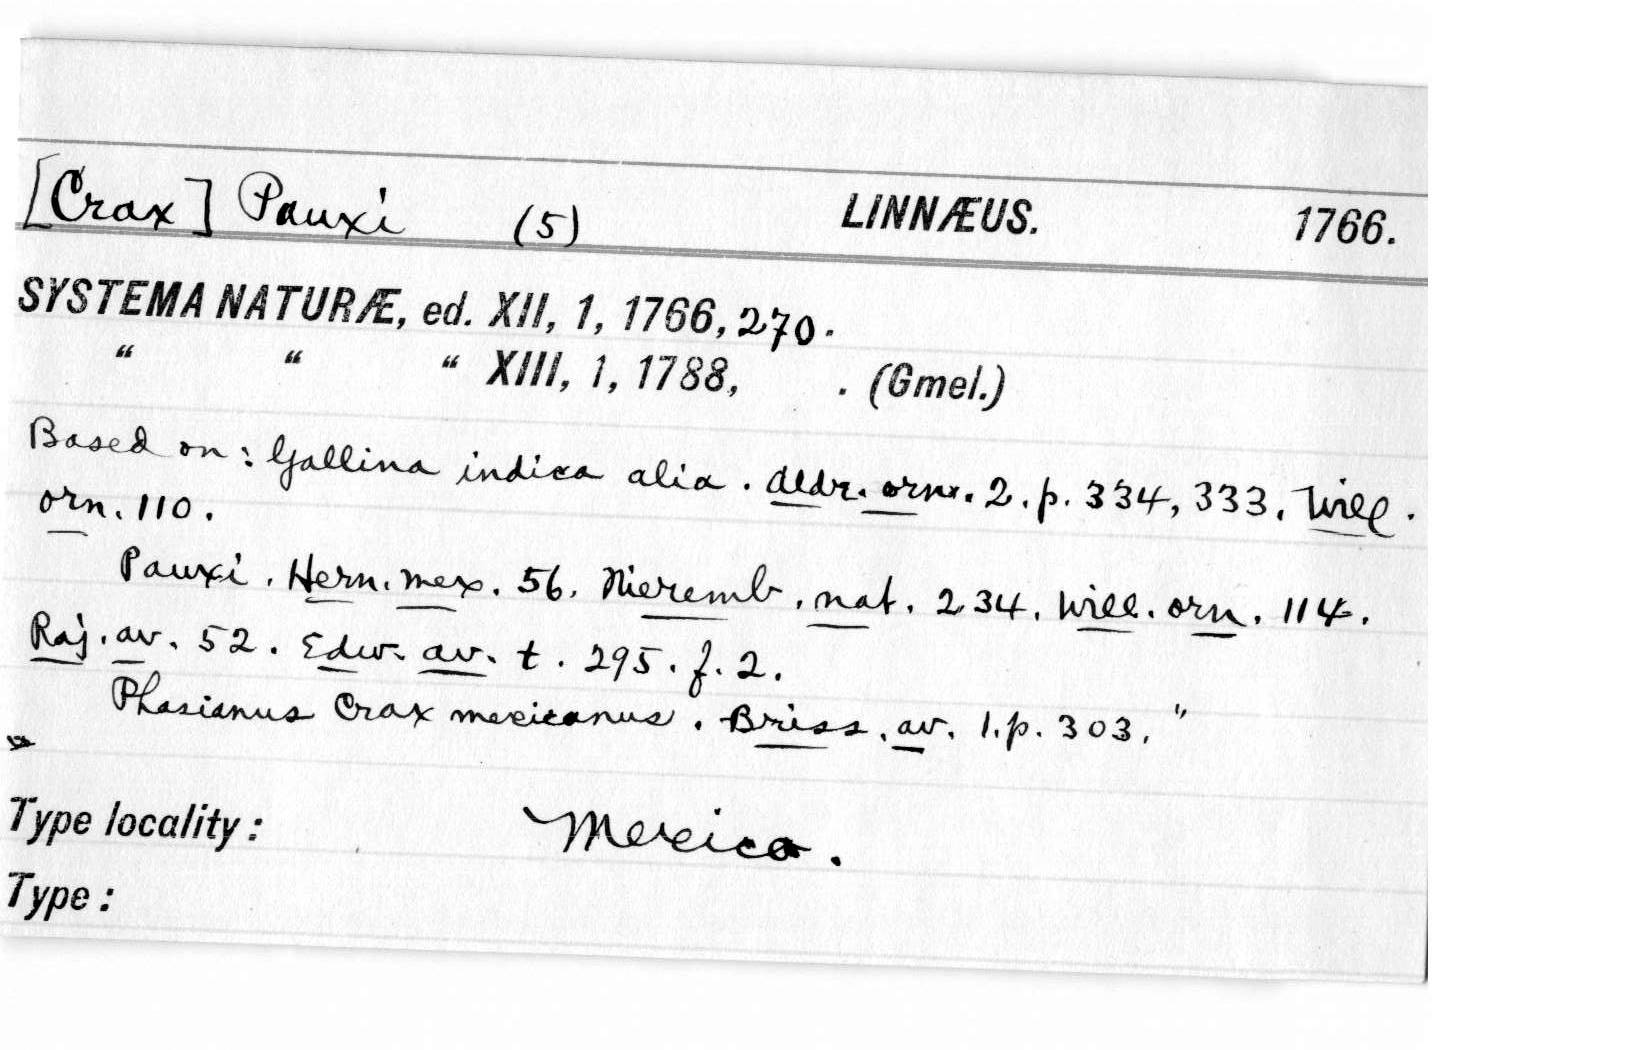 [Crax] Pauxi (5) LINNÆUS. 1766.
SYSTEMA NATURÆ, ed. XII, 1, 1766, 270.
“ “ “ XIII, 1, 1788, . (Gmel.)
Based on: Gallina indica alia. Aldr. orn. 2. p. 334, 333. Will.
orn. 110.
Pauxi. Hern. mex. 56. Nieremb. nat. 234. Will. orn. 114.
Raj. av. 52. Edw. av. t. 295. f. 2.
Phasianus Crax mexicanus. Briss. av. 1. p. 303."
Type locality: Mexico.
Type: